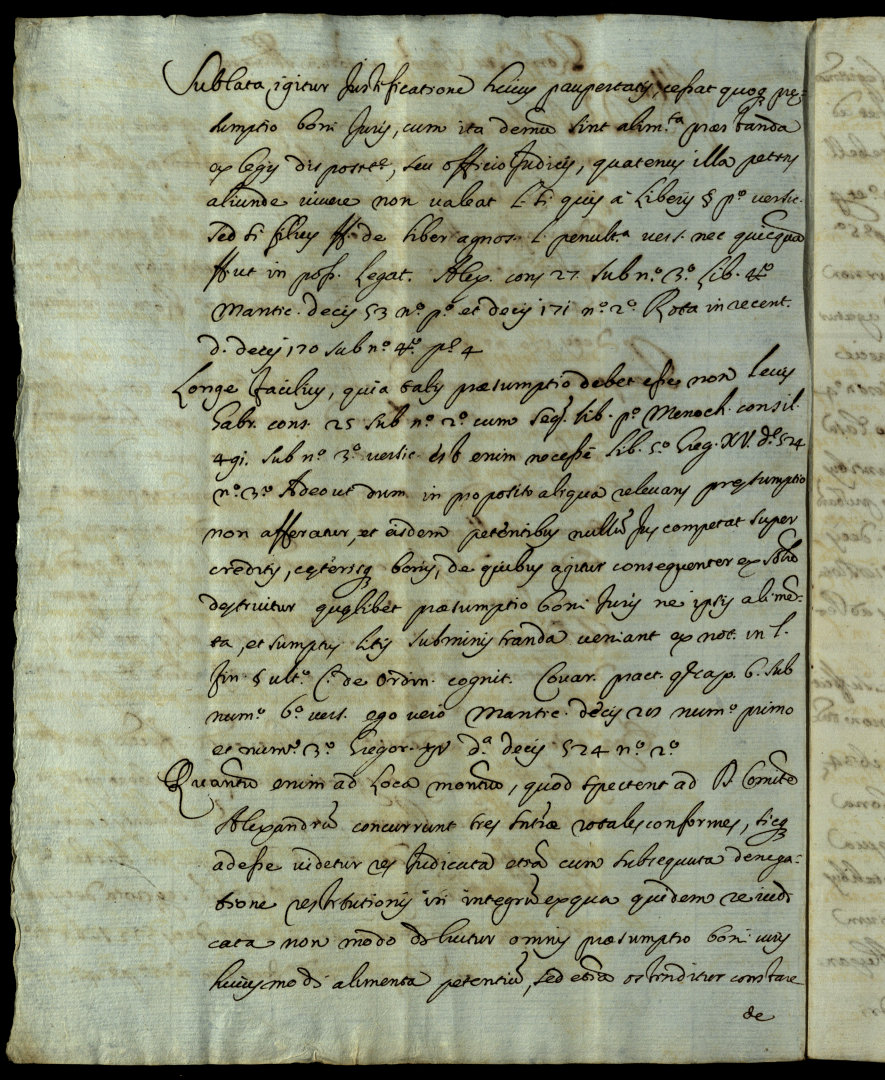 Sublata igitur Justificatione huius paupertatis, cessat quoq; prę-
sumptio boni Juris, cum ita demũ sint alim.ta præstanda
ex legis disposit.e, seu officio Judicis, quatenus illa petens
aliunde vivere non valeat L. si quis à liberis § p.o versic.
sed si filius ff. de liber agnos. l. penult.a vers. nec quicquã
ff. ut in poss. legat. Alex. cons 27. sub n.o 3.o lib. 4.o
Mantic. decis 53 n.o p.o et decis 171 n.o 2.o Rota in recent.
d. decis 170 sub n.o 4.o p.e 4
Longe facilius, quia talis præsumptio debet esse non levis
Gabr. cons. 25 sub n.o 2.o cum seq. lib. p.o Menoch. consil.
491. sub n.o 3.o versic. enim necesse lib. 5.o Greg. XV. d.o 524
n.o 3.o Adeo ut dum in proposito aliqua relevans pręsumptio
non afferatur, et eisdem petentibus nullũ Jus competat super
creditis, cęterisq; bonis, de quibus agitur consequenter ex
destruitur quęlibet præsumptio boni Juris ne ipsis alimẽ-
ta, et sumptus litis subministranda veniant ex not. in l.
fin. § ult.o C. de Ordin. cognit. Covar. pract. q. cap. 6. sub
num.o 6.o vers. ego vero Mantic. decis 211 num.o primo
et num.o 3.o Gregor. XV d.a decis 524 n.o 2.o
Quantũ enim ad Loca montiũ, quod spectent ad D. Comitẽ
Alexandrũ concurrunt tres sntiæ rotales conformes, sicq;
adesse videtur res Judicata etiã cum subsequuta denega-
tione restitutionis in integrũ ex qua quidem re iudi
cata non modo diluitur omnis præsumptio boni iuris
huiusmodi alimenta petentiũ, sed etiã ostenditur constare
de